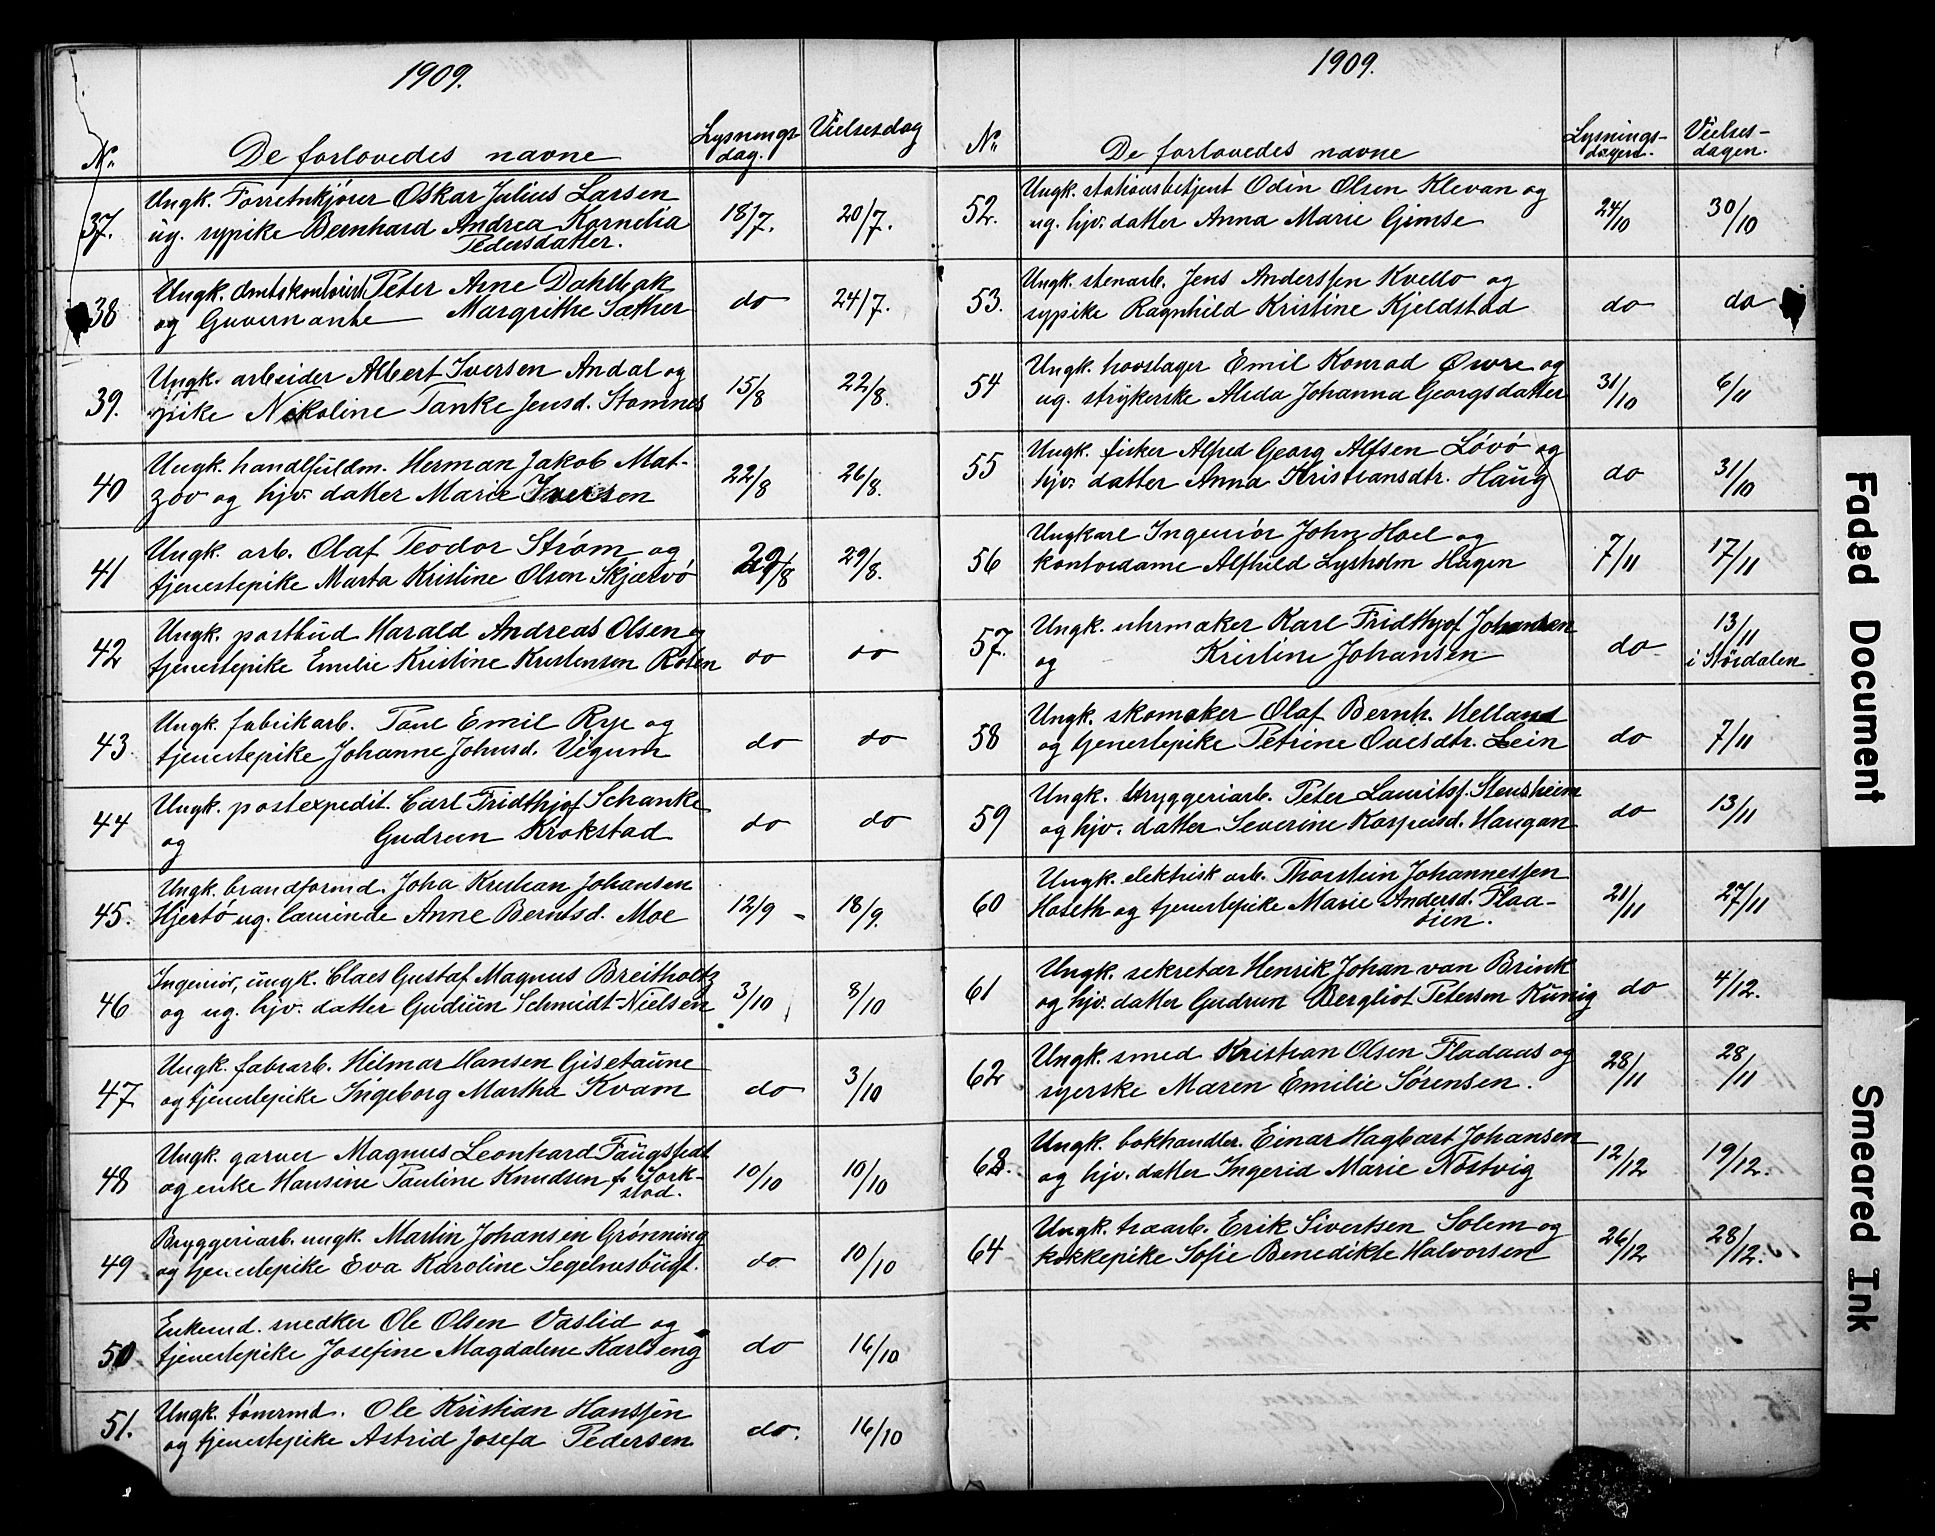 1909.
Nr. De forlovedes navne Lysnings dag. Vielsesdag
37. Ungk. Forretnkjører Oskar Julius Larsen 18/7. 20/7.
ug. sypike Bernhard Andrea Kornelia
Pedersdatter.
38 Ungk. Amtskontorist Peter Arne Dahlbak do 24/7.
og Guvernante Margrithe Sæther
39. Ungk. arbeider Albert Iversen Andal og 15/8 22/8.
pike Nikoline Tanke Jensd. Stamnes
40 Ungk. handlfuldm. Herman Jakob Mat- 22/8 26/8.
zov og hjv. datter Marie Iversen
41 Ungk. arb. Olaf Teodor Strøm og 29/8 29/8.
tjenestepike Marta Kristine Olsen Skjærvø
42 Ungk. postbud Harald Andreas Olsen og do do
tjenestepike Emilie Kristine Kristensen Roten
43. Ungk. fabrikarb. Paul Emil Rye og do do
tjenestepike Johanne Johnsd. Vigum
44 Ungk. postexpedit. Carl Fridthjof Schanke do do
og Gudrun Krokstad
45. Ungk. brandformd. Joha Kristian Johansen 12/9 - 18/9.
Hjertø ug. læerinde Anne Berntsd. Moe
46 Ingeniør, ungk. Claes Gustaf Magnus Breitholtz 3/10 8/10
og ug. hjv. datter Gudrun Schmidt-Nielsen
47 Ungk. fabrarb. Hilmar Hansen Gisetaune do 3/10
og tjenestepike Ingeborg Martha Kvam
48 Ungk. garver Magnus Leonhard Faugstadt 10/10 10/10
og enke Hansine Pauline Knudsen f. Sork-
stad.
49 Bryggeriarb. ungk. Martin Johansen Grønning do 10/10
og tjenestepike Eva Karoline Segelnesbugt.
50 Enkemd. snedker Ole Olsen Vaslid og do 16/10
tjenestepike Josefine Magdalene Karlseng
51. Ungk. tømrmd. Ole Kristian Hanssen do. 16/10
og tjenestepike Astrid Josefa Pedersen
1909.
Nr. De forlovedes navne Lysnings- dagen. Vielses- dagen.
52. Ungk. stationsbetjent Odin Olsen Klevan og 24/10 30/10
ug. hjv. datter Anna Marie Gimse
53. Ungk. stenarb. Jens Anderssen Kvello og do do
sypike Ragnhild Kristine Kjeldstad
54 Ungk. hovslager Emil Konrad Øwre og 31/10 6/11
ug. strykerske Alida Johanna Georgsdatter
55 Ungk. fisker Alfred Georg Alfsen Løvø og do 31/10
hjv. datter Anna Kristiansdtr. Haug
56 Ungkarl Ingeniør John Hoel og 7/11 17/11
kontordame Alfhild Lysholm Hagen
57. Ungk. uhrmaker Karl Fridthjof Johansen do 13/11
og Kristine Johansen i Størdalen
58 Ungk. skomaker Olaf Bernh. Helland do 7/11
og tjenestepike Petrine Ovesdtr. Lein
59 Ungk. bryggeriarb. Peter Lauritsf. Stensheim do 13/11
og hjv. datter Severine Kaspersd. Haugan
60 Ungk. elektrisk arb. Thorstein Johannessen 21/11 27/11
Hoseth og tjenestepike Marie Andersd. Flaa-
øien.
61 Ungk. sekretær Henrik Johan van Brink do 4/12.
og hjv. datter Gudrun Bergliot Petersen Kunig
62 Ungk. smed Kristian Olsen Fladaas og 28/11 28/11
syerske Maren Emilie Sørensen.
63. Ungk. bokhandler. Einar Hagbart Johansen 12/12 19/12.
og hjv. datter Ingerid Marie Nøstvig
64 Ungk. træarb. Erik Sivertsen Solem og 26/12 28/12.
kokkepike Sofie Benedikte Halvorsen
Faded Document
Smeared Ink